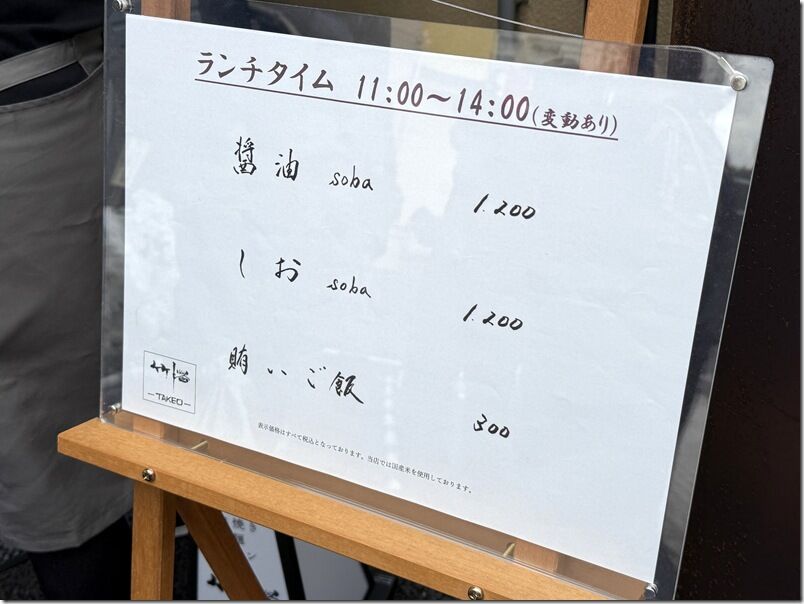 ランチタイム 11:00～14:00(変動あり)
醤油 soba 1.200
しお soba 1.200
賄いご飯 300
TAKEO
表示価格はすべて税込となっております。当店では国産米を使用しております。
焼き